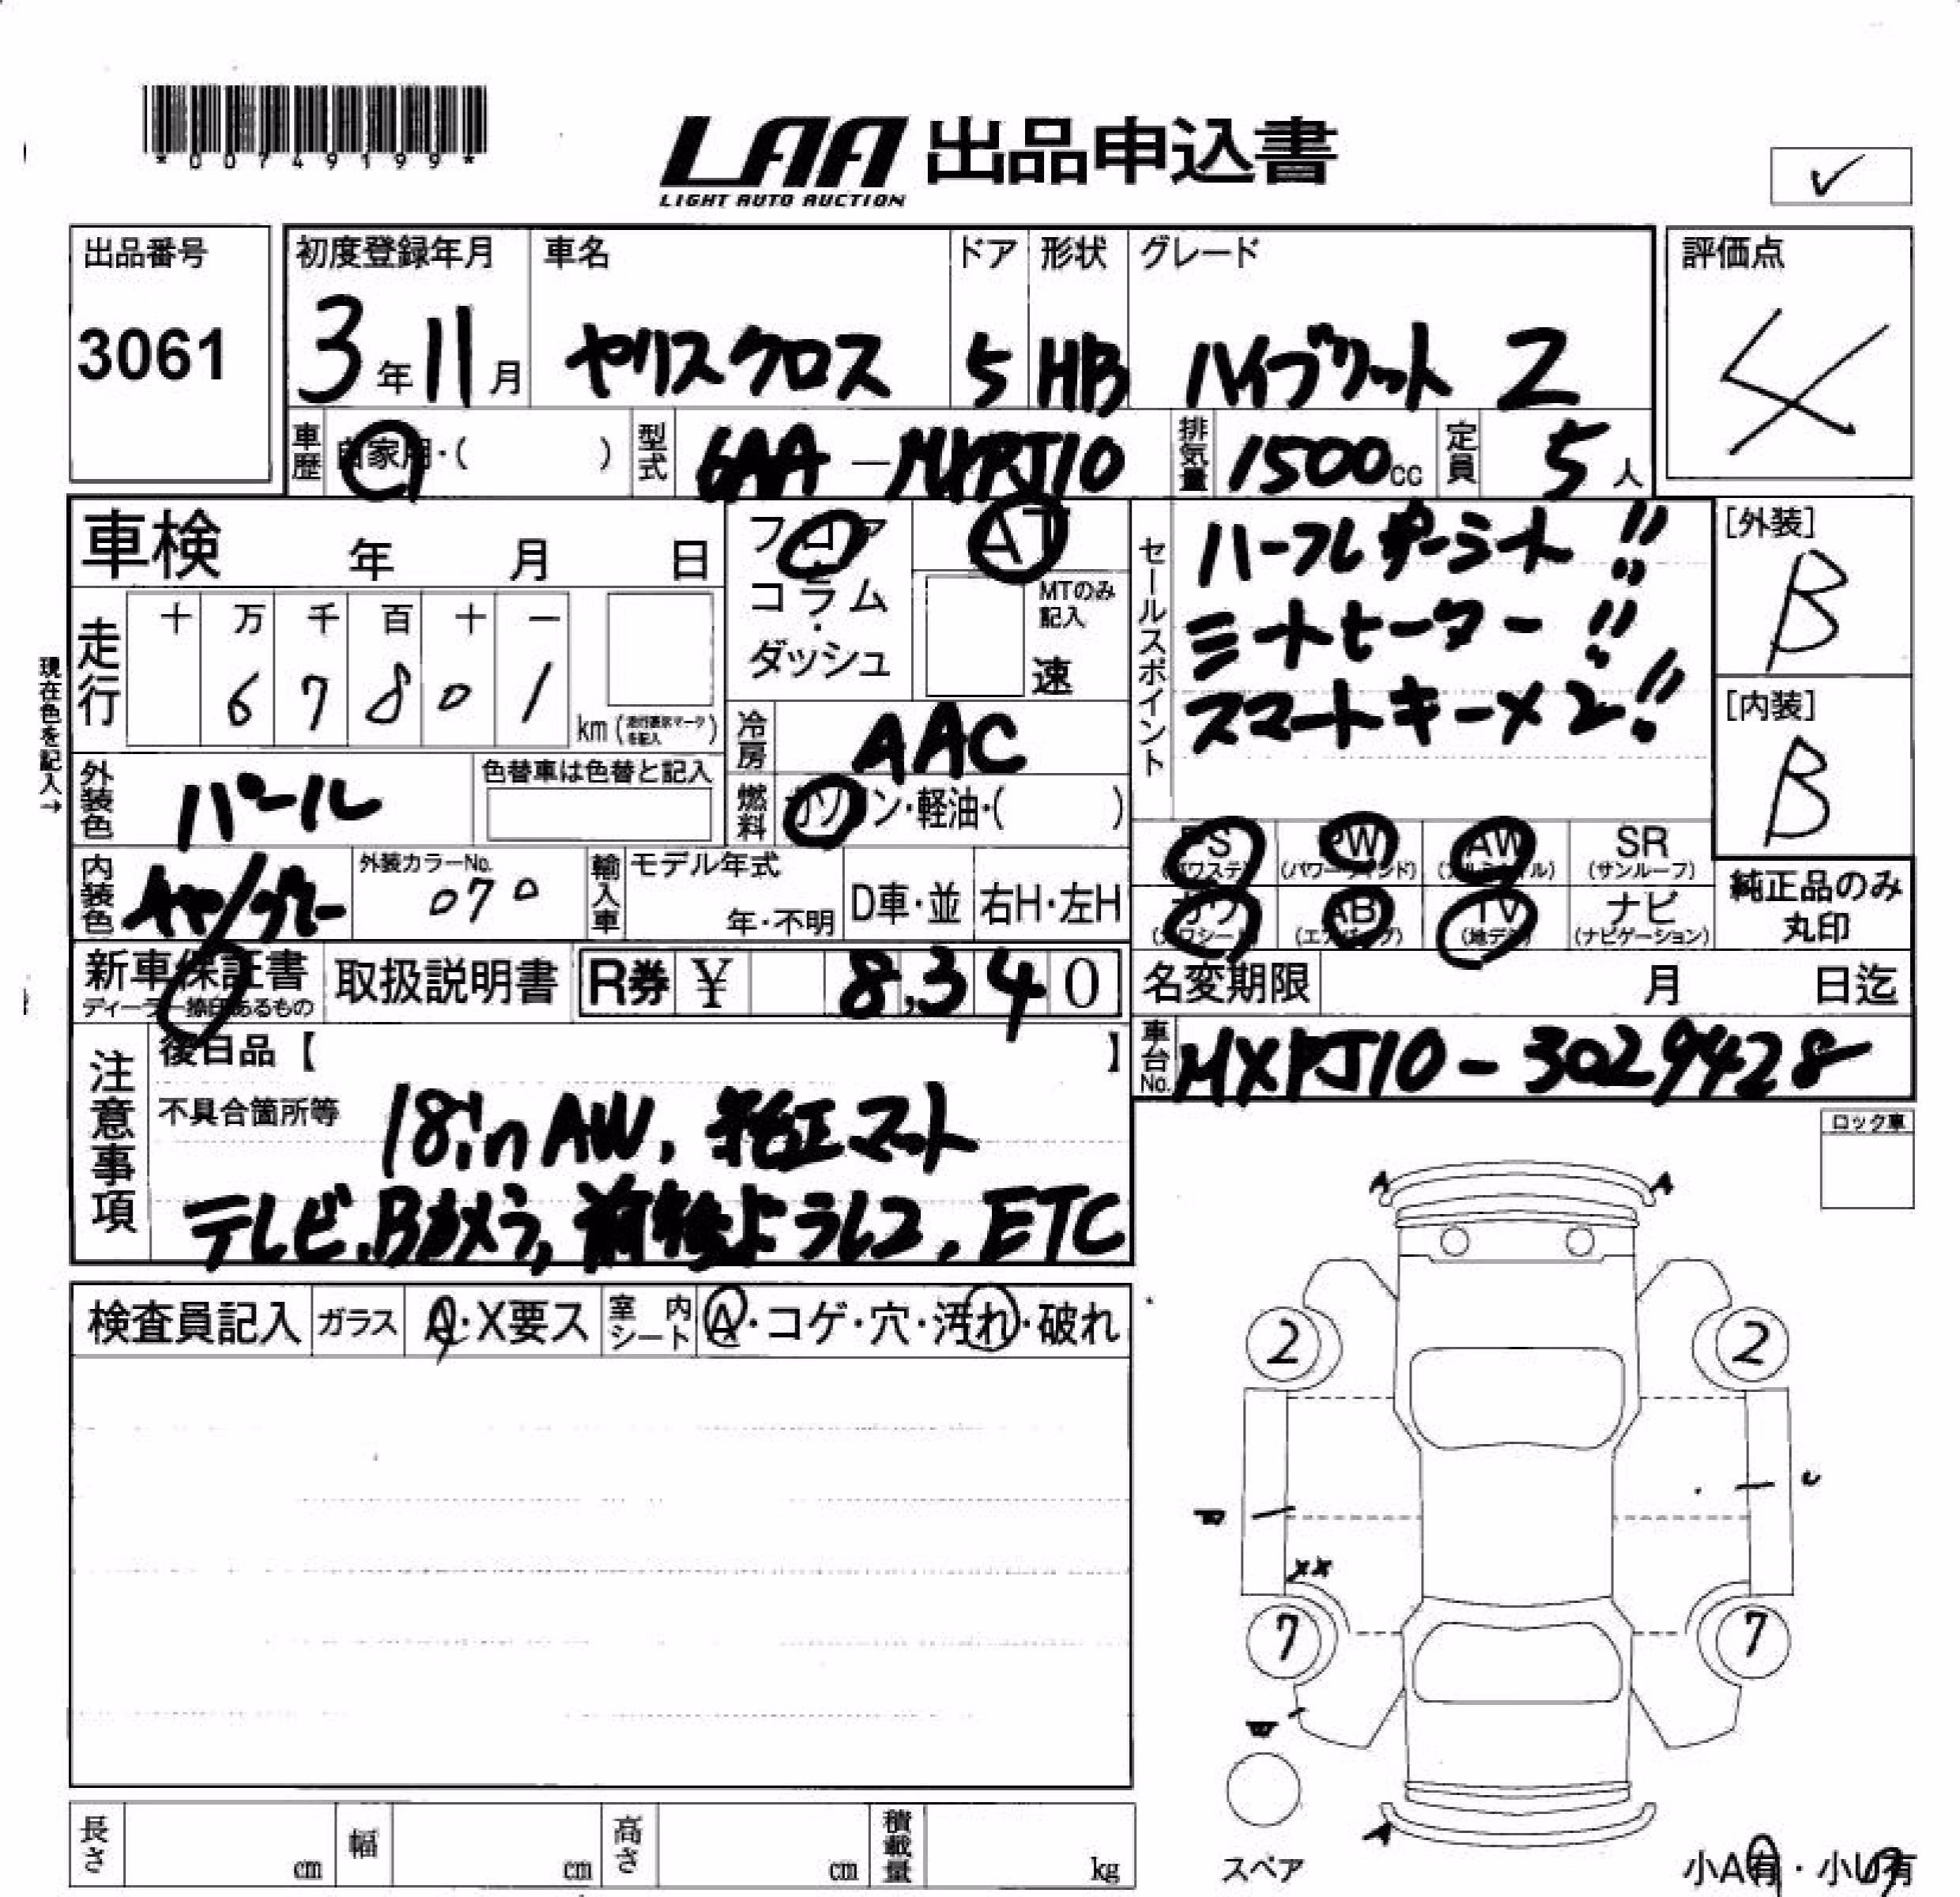 *00749199*
LAA 出品申込書
LIGHT AUTO AUCTION
✓
出品番号
3061
初度登録年月
3年11月
車名
ヤリスクロス
ドア
5
形状
HB
グレード
ハイブリット Z
評価点
4
車歴
自家用・( )
型式
6AA-MXPJ10
排気量
1500cc
定員
5人
車検 年 月 日
フロア・コラム・ダッシュ
AT
MTのみ記入
速
セールスポイント
ハーフレザーシート!!
シートヒーター!!
スマートキー×2!!
[外装]
B
[内装]
B
現在色を記入→
走行
十 万 千 百 十 一
6 7 8 0 1
km (走行表示マークを記入)
冷房
AAC
燃料
ガソリン・軽油・( )
外装色
パール
色替車は色替と記入
内装色
外装カラーNo.
070
輸入車
モデル年式
年・不明
D車・並
右H・左H
PS (パワステ)
PW (パワーウインド)
AW (アルミホイル)
SR (サンルーフ)
カワ (カワシート)
AB (エアバッグ)
TV (地デジ)
ナビ (ナビゲーション)
純正品のみ丸印
新車保証書
ディーラー捺印あるもの
取扱説明書
R券 ¥ 8,340
名変期限 月 日迄
車台No.
MXPJ10-3029428
注意事項
後日品【 】
不具合箇所等
18in AW, 純正マット
テレビ, Bカメラ, 前後ドラレコ, ETC
ロック車
検査員記入
ガラス
A・X要ス
室内シート
A・コゲ・穴・汚れ・破れ
A
A
2
2
xx
7
7
A
スペア
小A有・小U有
長さ cm
幅 cm
高さ cm
積載量 kg